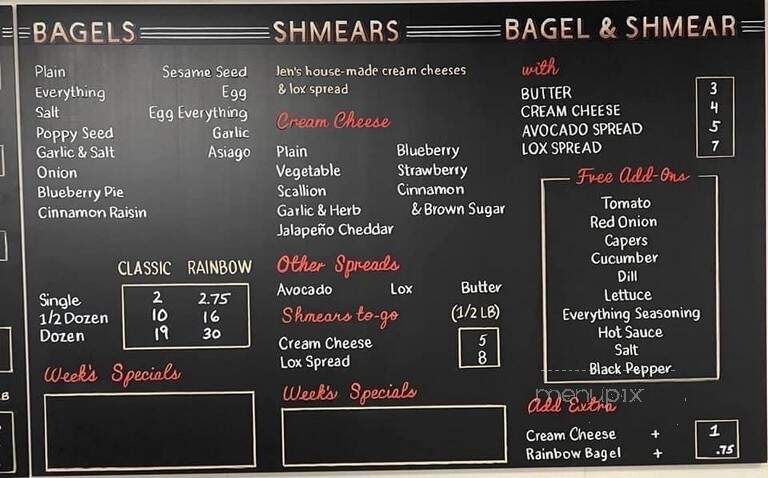 BAGELS
Plain Sesame Seed
Everything Egg
Salt Egg Everything
Poppy Seed Garlic
Garlic & Salt Asiago
Onion
Blueberry Pie
Cinnamon Raisin
CLASSIC RAINBOW
Single 2 2.75
1/2 Dozen 10 16
Dozen 19 30
Week's Specials
SHMEARS
Jen's house-made cream cheeses
& lox spread
Cream Cheese
Plain Blueberry
Vegetable Strawberry
Scallion Cinnamon
Garlic & Herb & Brown Sugar
Jalapeño Cheddar
Other Spreads
Avocado Lox Butter
Shmears to-go (1/2 LB)
Cream Cheese 5
Lox Spread 8
Week's Specials
BAGEL & SHMEAR
with
BUTTER 3
CREAM CHEESE 4
AVOCADO SPREAD 5
LOX SPREAD 7
Free Add-Ons
Tomato
Red Onion
Capers
Cucumber
Dill
Lettuce
Everything Seasoning
Hot Sauce
Salt
Black Pepper
menupix
Add Extra
Cream Cheese + 1
Rainbow Bagel + .75